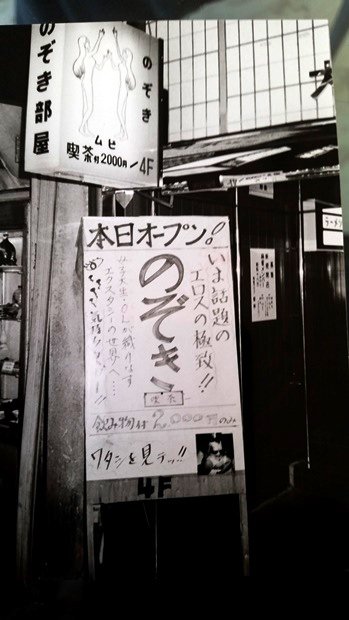 のぞき部屋
のぞき
ムヒ
喫茶付2000円／4F
本日オープン!
いま話題の
エロスの極致!!
のぞき
喫茶
女子大生・OLが織りなす
エクスタシーの世界へ……
飲み物付 2,000円のみ
ワタシを見テッ!!
4F
ラーメン